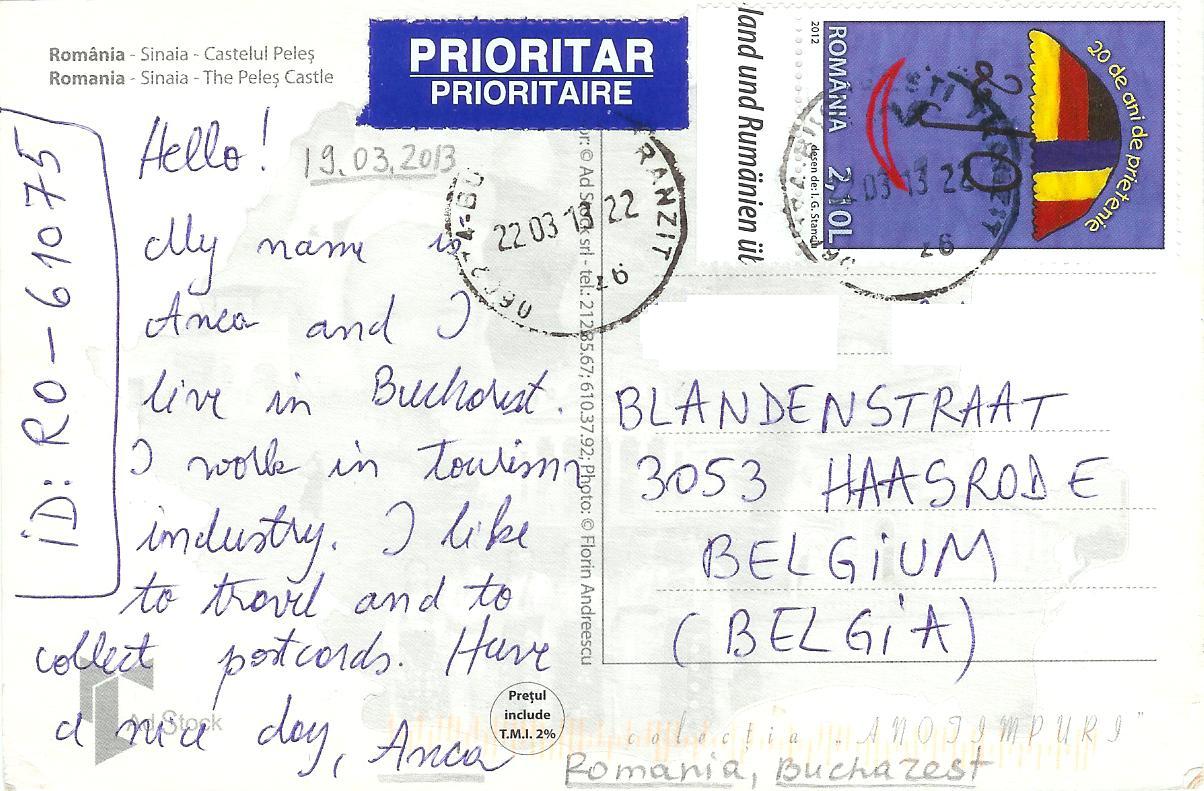 România - Sinaia - Castelul Peleş
Romania - Sinaia - The Peleş Castle
PRIORITAR
PRIORITAIRE
land und Rumänien ül
ROMÂNIA 2,10L
2012
desen de: I. G. Stancu
20 de ani de prietenie
ID: RO-61075
19.03.2013
Hello!
My name is
Anca and I
live in Bucharest.
I work in tourism
industry. I like
to travel and to
collect postcards. Have
a nice day, Anca
RANZIT
22 03 13 22
03 13 22
or: © Ad Stock srl - tel.: 212.85.67; 610.37.92; Photo: © Florin Andreescu
BLANDENSTRAAT
3053 HAASRODE
BELGIUM
(BELGIA)
Ad Stock
Preţul
include
T.M.I. 2%
colecţia „ANOTIMPURI"
Romania, Bucharest